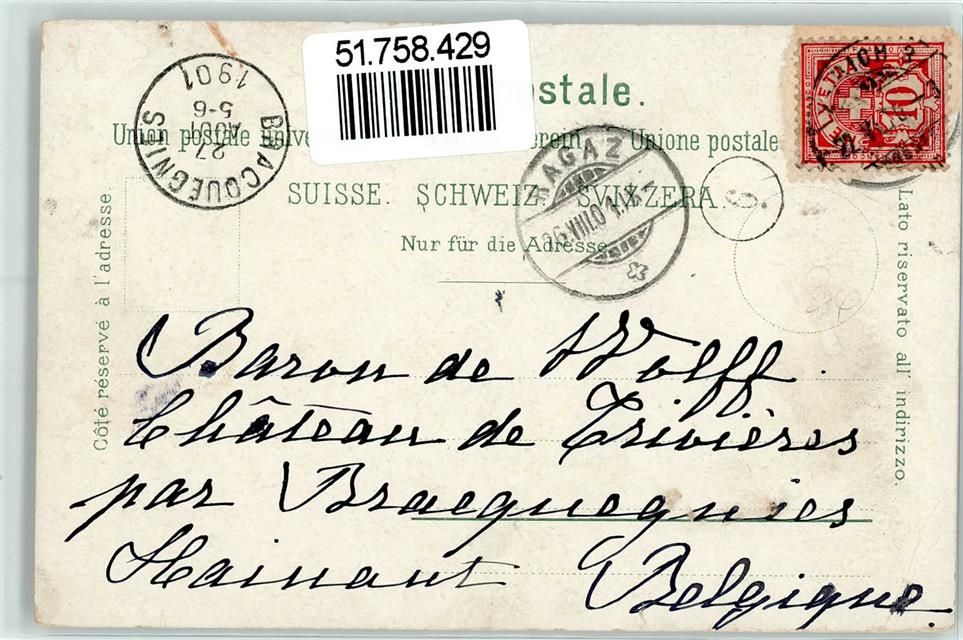 51.758.429
postale.
Union postale unive
erein. Unione postale
SUISSE. SCHWEIZ. SVIZZERA.
Nur für die Adresse
Côté réservé à l'adresse.
Lato riservato all' indirizzo.
BRACQUEGNIES
1901
5-6
AOUT
27
RAGAZ
26.VIII.01.IX
6
HELVETIA
FRANCO
10
Baron de Wolff.
Château de Trivières
par Bracquegnies
Hainaut Belgique.